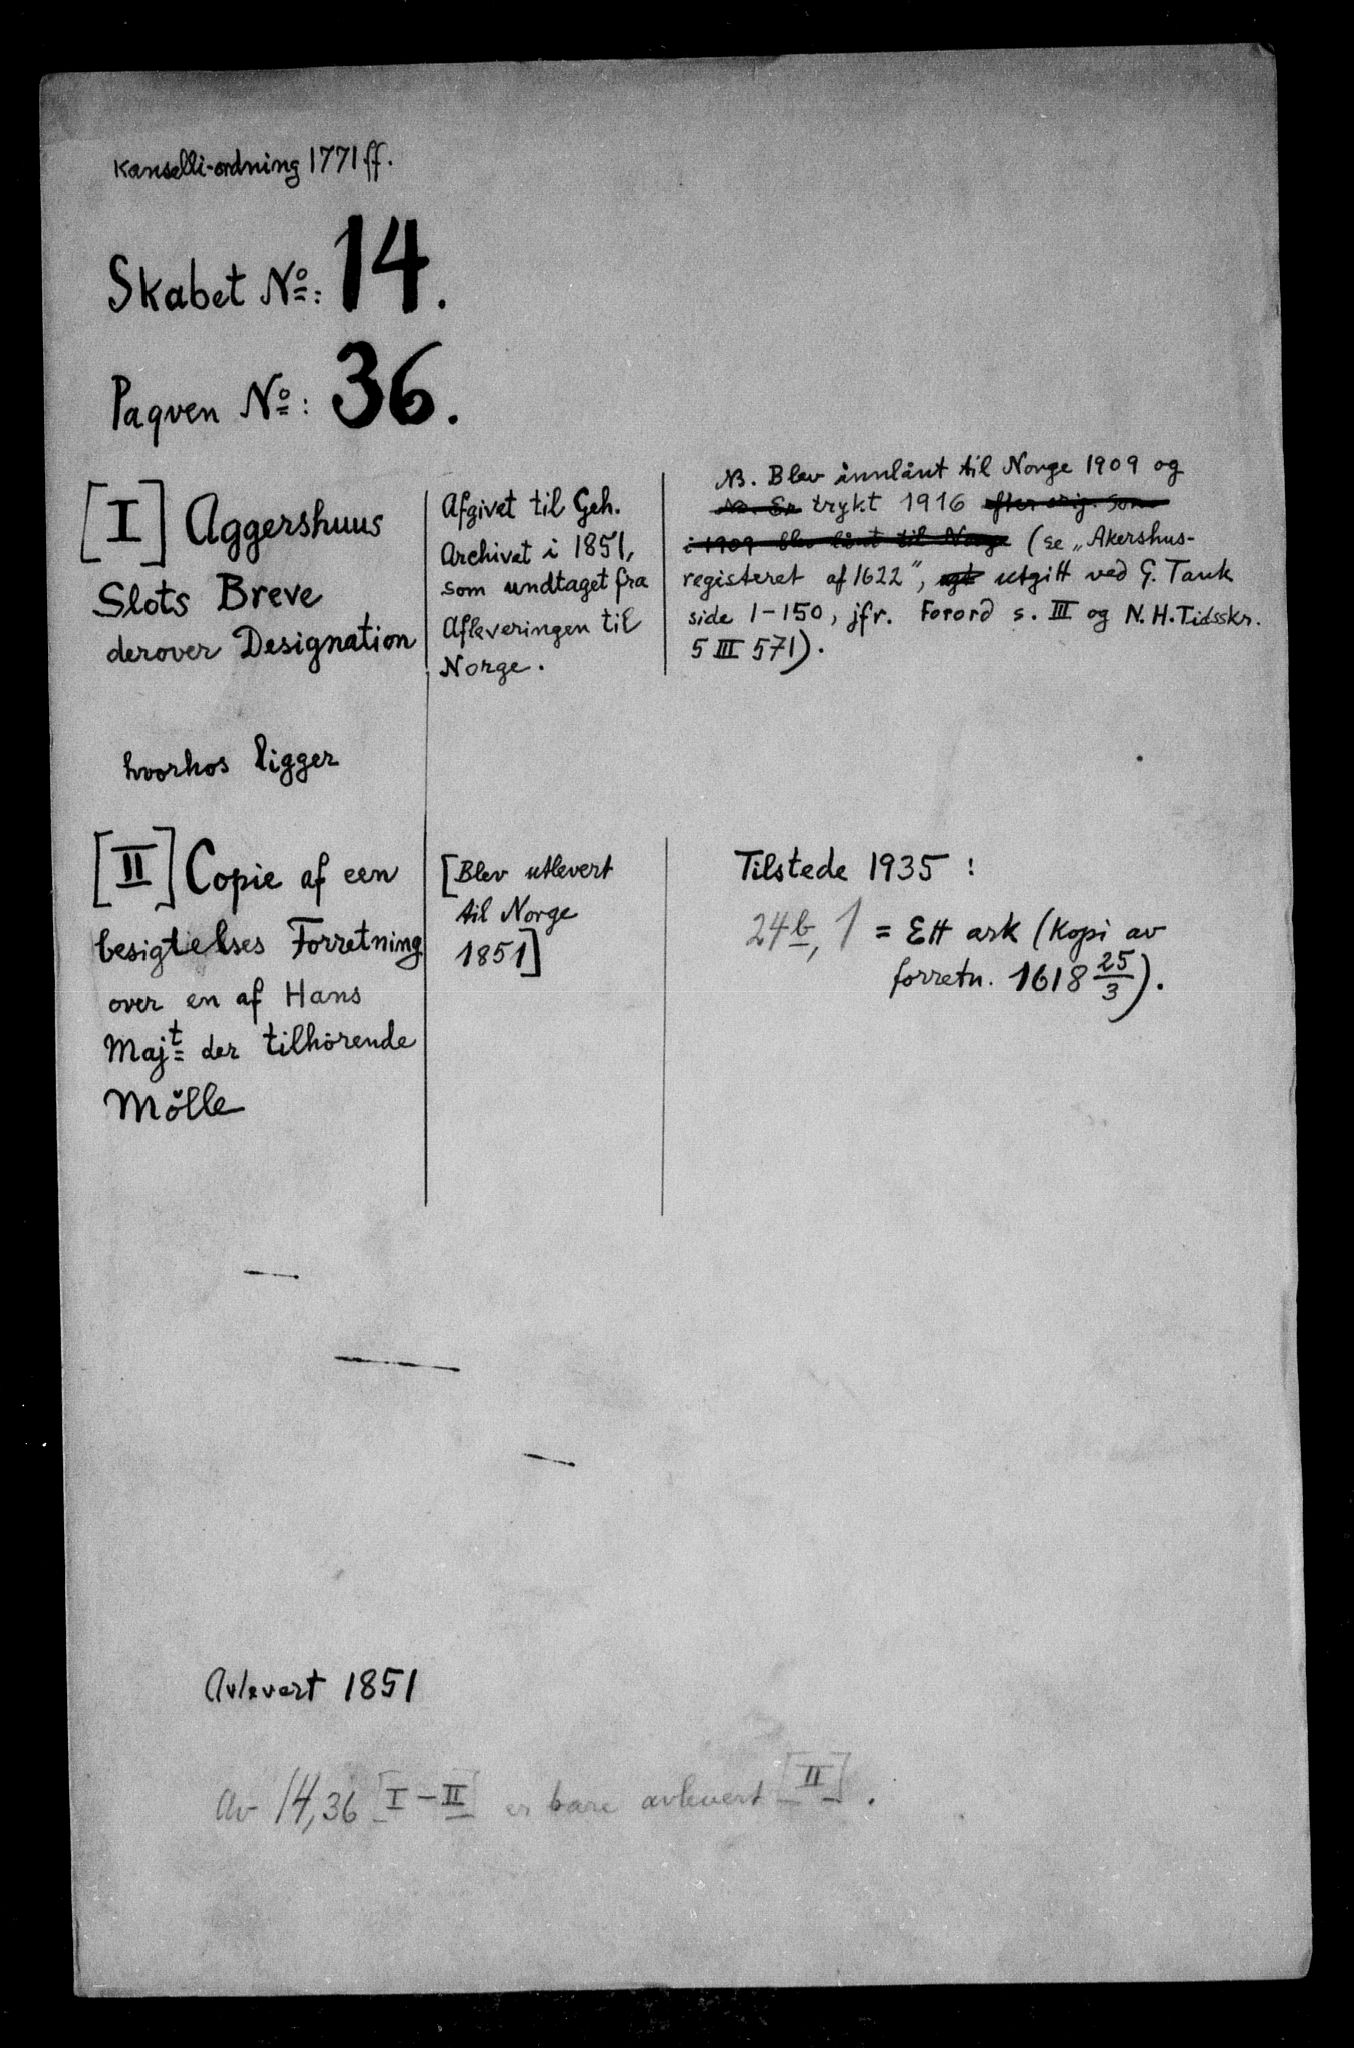 Kanselli-ordning 1771 ff.
Skabet No: 14.
Paqven No: 36.
[I] Aggershuus
Slots Breve
derover Designation
Afgivet til Geh.
Archivet i 1851,
som undtaget fra
Afleveringen til
Norge.
NB. Blev innlånt til Norge 1909 og
NB. Er trykt 1916 efter orig. som
i 1909 blev lånt til Norge (se „Akershus-
registeret af 1622”, utgitt ved G. Tank
side 1-150, jfr. Forord s. III og N.H.Tidsskr.
5 III 571).
hvorhos ligger
[II] Copie af een
besigtelses Forretning
over en af Hans
Majt der tilhörende
Mölle
[Blev utlevert
til Norge
1851]
Tilstede 1935 :
24b, 1 = Ett ark (Kopi av
forretn. 1618 25/3).
Avlevert 1851
Av 14,36 [I-II] er bare avlevert [II].